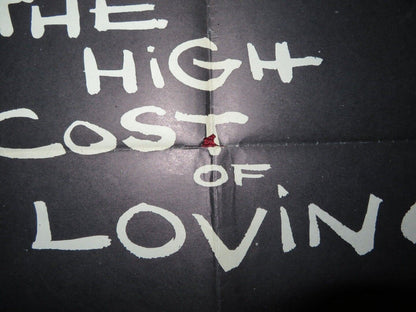 THE
HiGH
COST
OF
LOViNG